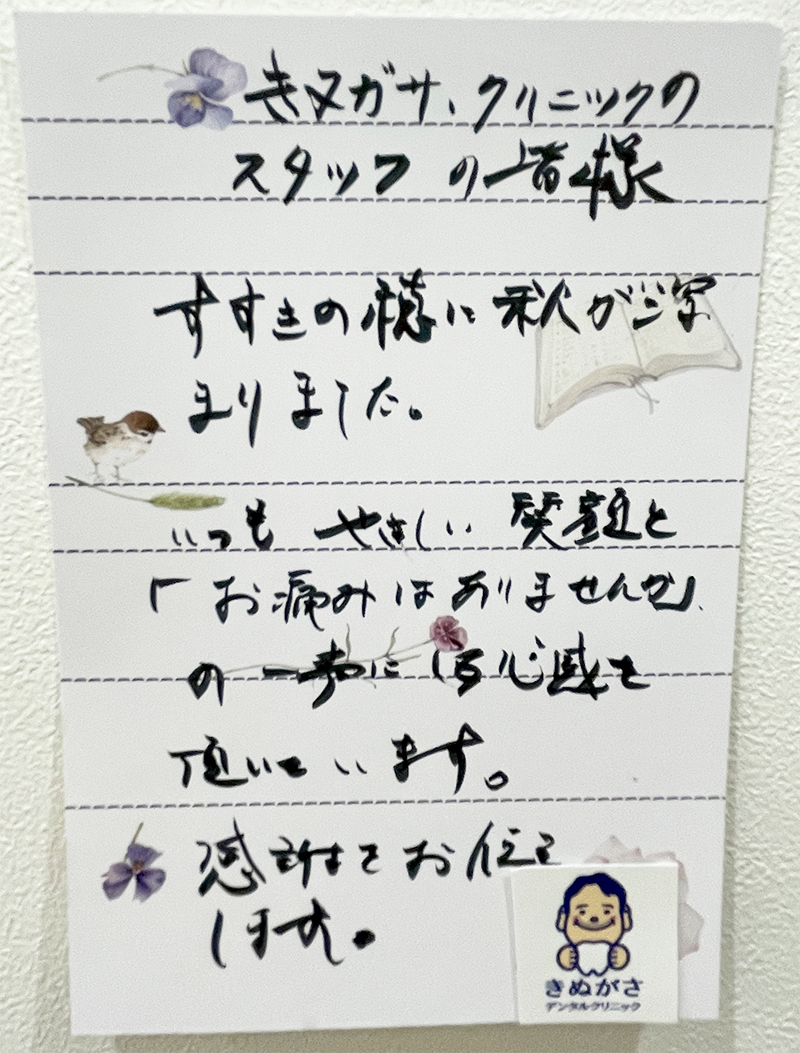 きヌガサ、クリニックの
スタッフ の皆様
すすきの穂に 秋が深
まりました。
いつも やさしい 笑顔と
「お痛みはありませんか」
の 一声に 心感を
頂いて います。
感謝をお伝え
します。
きぬがさ
デンタルクリニック